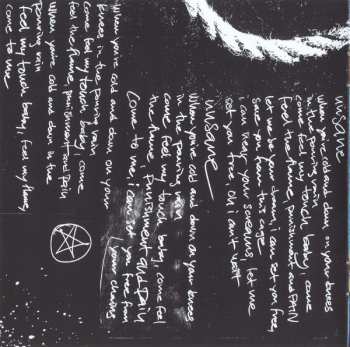 inSane
When you're cold and down on your knees
in the pouring rain
come feel my touch baby, come
feel the flame, punishment and PAIN
let me be your i can set you free,
save you from this cage
i can hear your screams, let me
set you free, oh i can't wait
inSane
When you're cold and down on your knees
in the pouring rain
come feel my touch baby, come feel
the flame, punishment and PAIN
Come to me, i can set you free from
your chains
When you're cold and down on your
knees in the pouring rain
come feel my touch baby, come
feel the flame, punishment and pain
When you're cold and down in the
pouring rain
feel my touch baby, feel my flame,
come to me